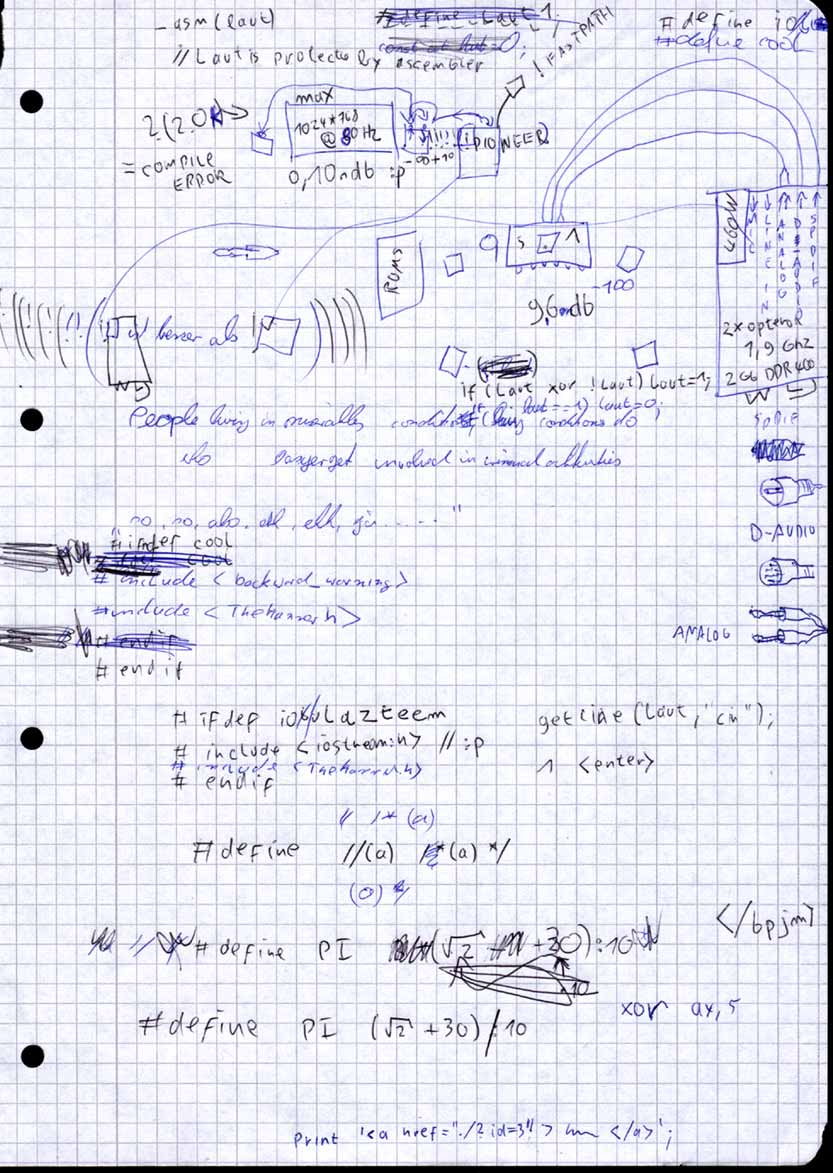 _asm(laut)
#define Laut 1
# define
#define cool
const int laut=0;
// Laut is protected by assembler
! FASTPATH
max
1024*768
@ 80 Hz
2(2.0
= COMPILE
ERROR
!!!! (PIONEER)
-∞ +10
0,10ndb :p
460W
MIC
LINE IN
ANALOG
D-AUDIO
SPDIF
ROMS
9
5 1
-100
9,6ndb
2x opteron
1,9 Ghz
2Gb DDR400
!! besser als !
if (Laut xor !Laut) laut=1;
if (laut==1) laut=0;
People living in miserably conditions
who get involved in criminal
SPDIF
no, no, abo, dd, elk, "
D-AUDIO
# ifndef cool
# include <backward_warning>
#include <TheHammer.h>
# endif
# endif
ANALOG
# ifdef Lazteem
getline (Laut, "cin");
# include <iostream.h> // :p
# include <TheHammer.h>
1 <enter>
# endif
// /* (a)
# define //(a) /*(a) */
(0) */
</bpjm>
# define PI (√2 +30):10
10
xor ax,5
#define PI (√2 +30)/10
print '<a href="./?id=3"> </a>';